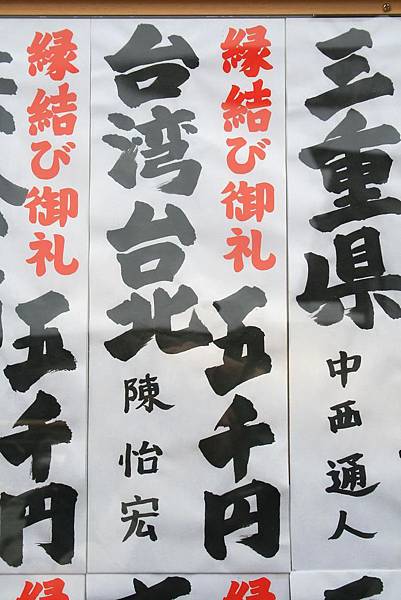 三重県
中西通人
縁結び御礼
五千円
台湾台北
陳怡宏
縁結び御礼
五千円